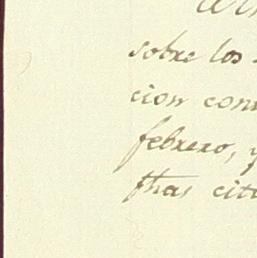 sobre los
cion con
febrero, y
fhas cita